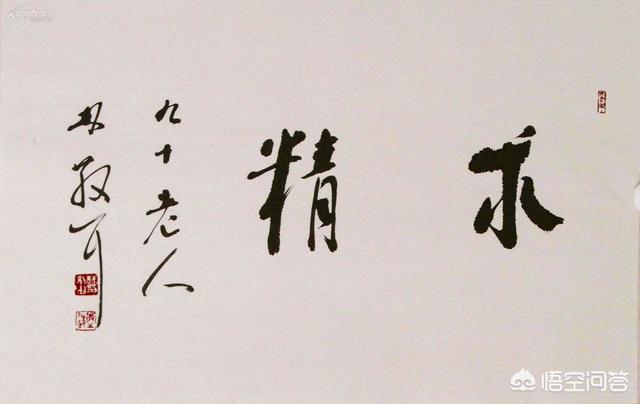 求精
九十老人
林散耳
悟空问答